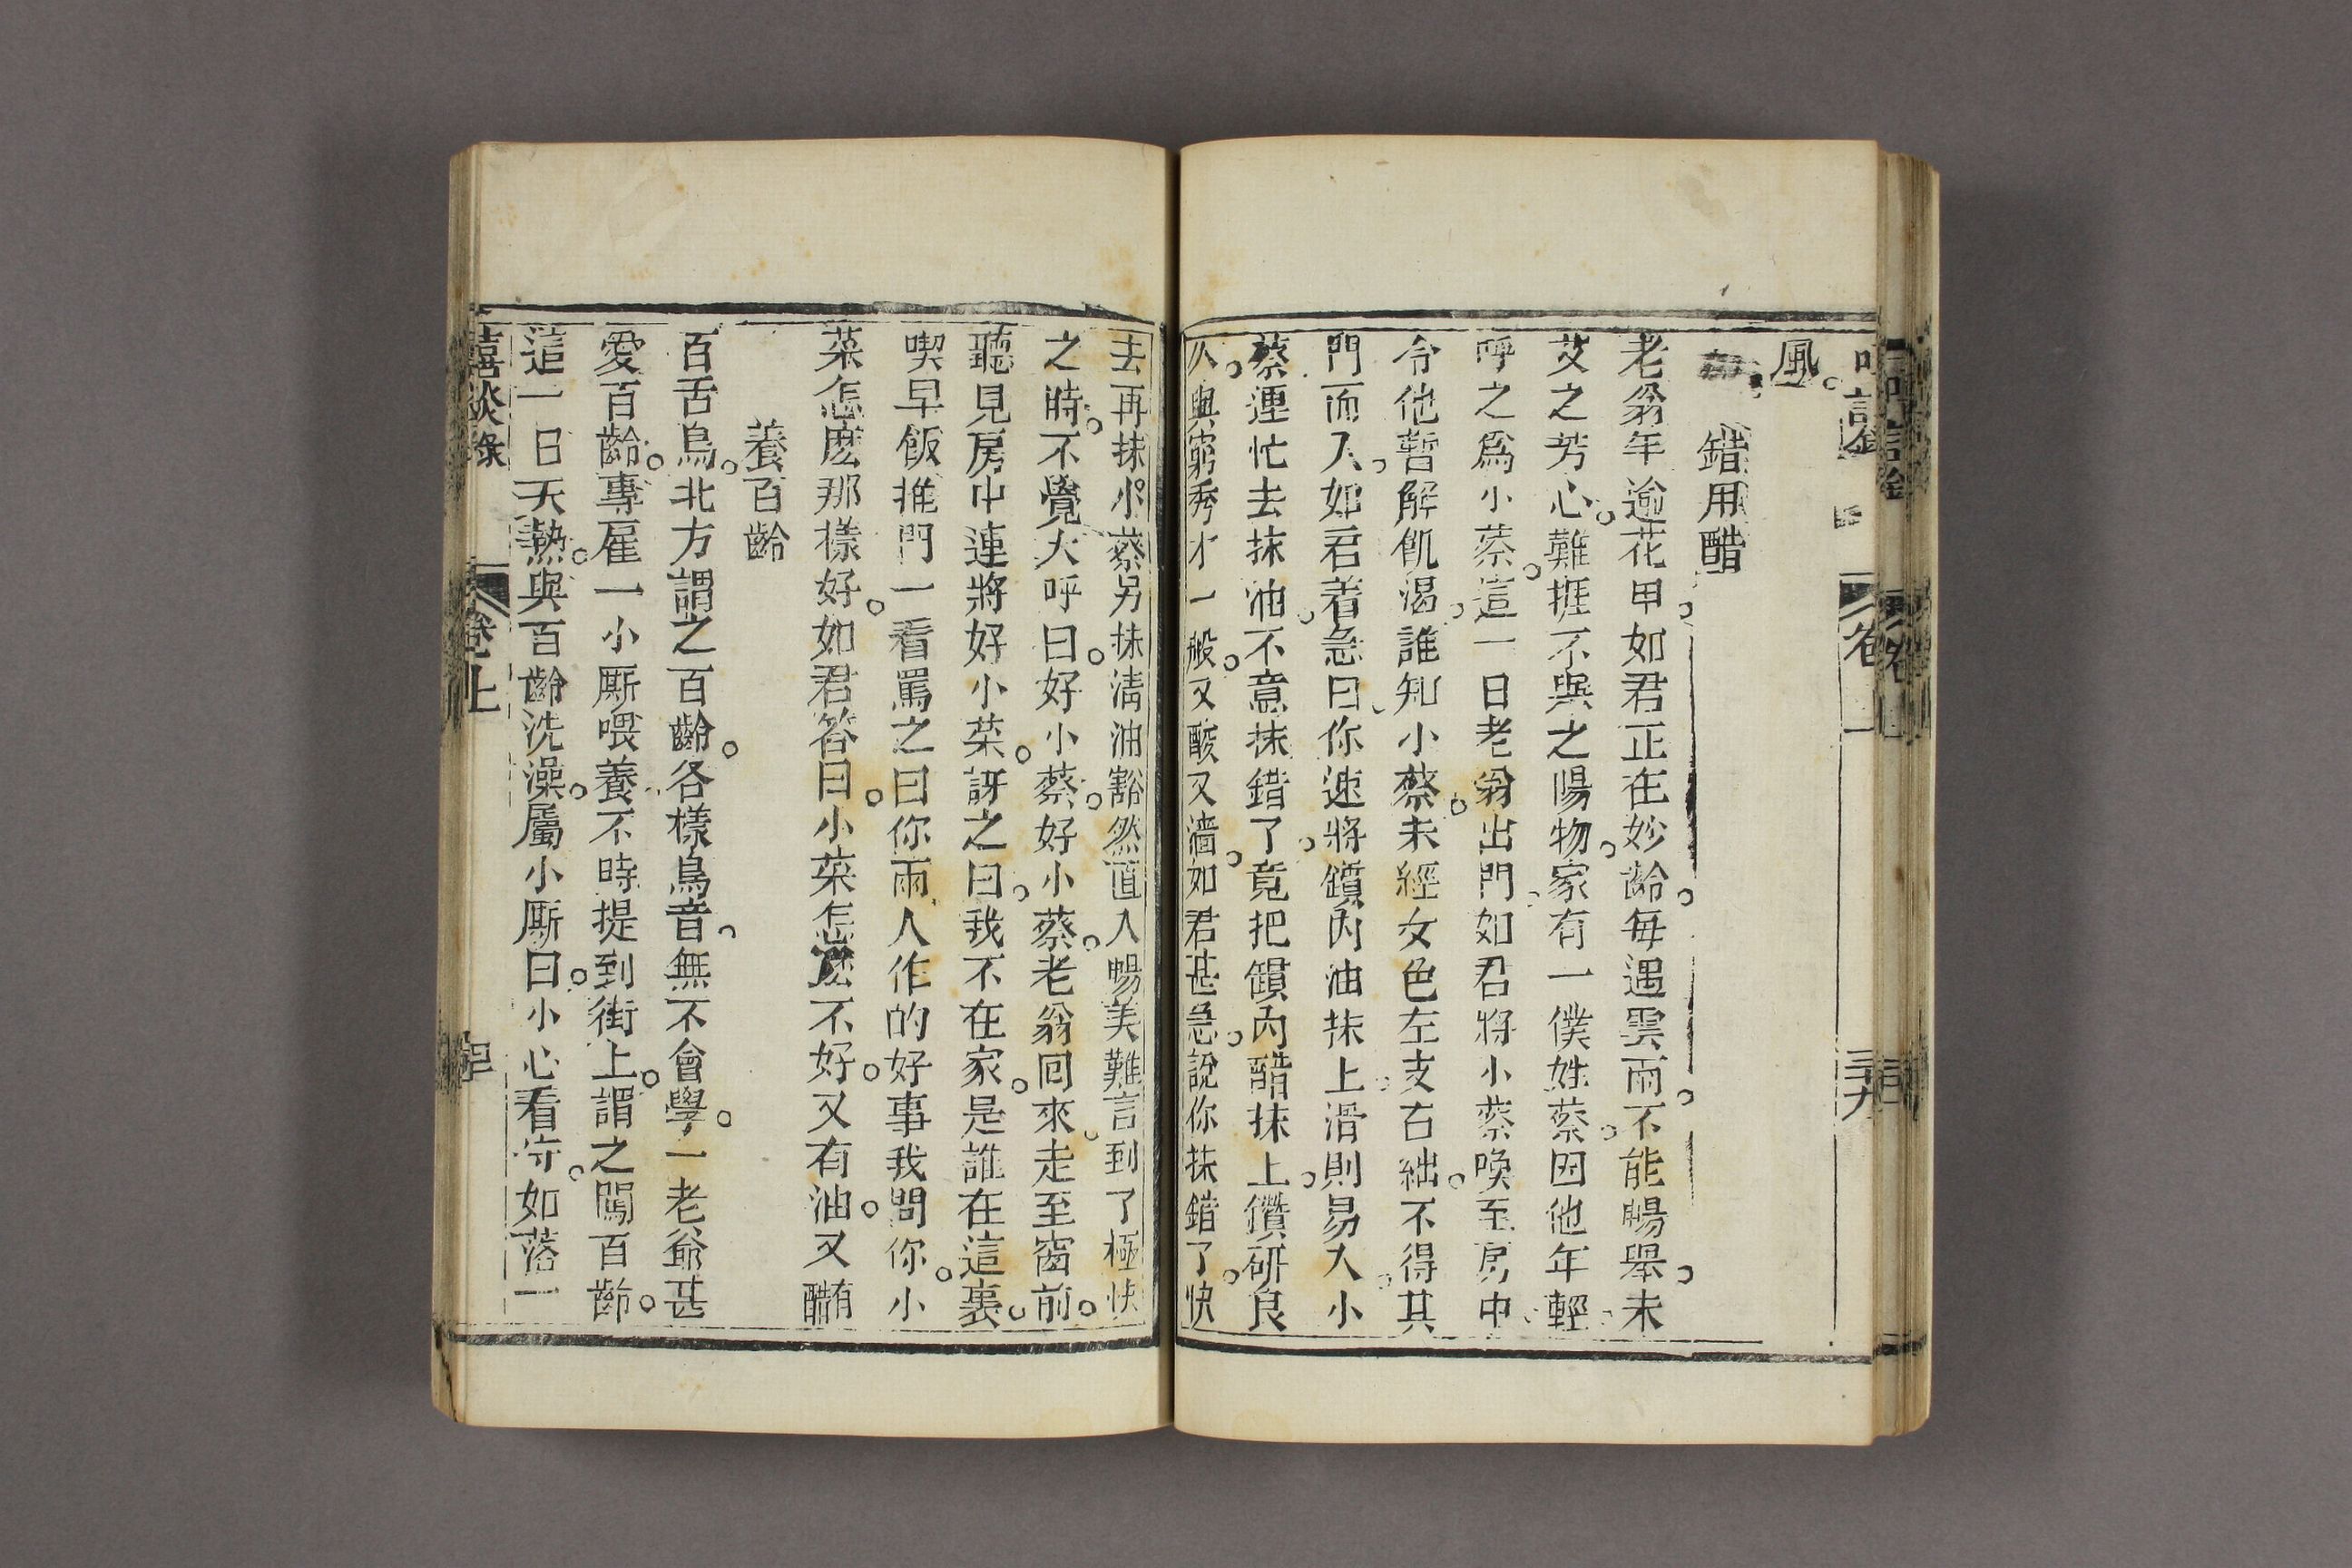 卷
三十九
風
錯用醋
老翁年逾花甲如君正在妙齡每遇雲雨不能暢舉未
艾之芳心難捱不與之陽物家有一僕姓蔡因他年輕
呼之爲小蔡這一日老翁出門如君將小蔡喚至房中
令他暫解飢渴誰知小蔡未經女色左支右絀不得其
門而入如君着急曰你速將鑽內油抹上滑則易入小
蔡連忙去抹油不意抹錯了竟把鑽內醋抹上鑽研良
久與窮秀才一般又酸又濇如君甚急說你抹錯了快
去再抹小蔡另抹清油豁然直入暢美難言到了極快
之時不覺大呼曰好小蔡好小蔡老翁囘來走至窗前
聽見房中連將好小菜訝之曰我不在家是誰在這裏
喫早飯推門一看罵之曰你兩人作的好事我問你小
菜怎麽那樣好如君答曰小菜怎麽不好又有油又有醋
養百齡
百舌鳥北方謂之百齡各樣鳥音無不會學一老爺甚
愛百齡專雇一小厮喂養不時提到街上謂之闖百齡
這一日天熱與百齡洗澡屬小厮曰小心看守如落一
嘻談錄
卷上
四十